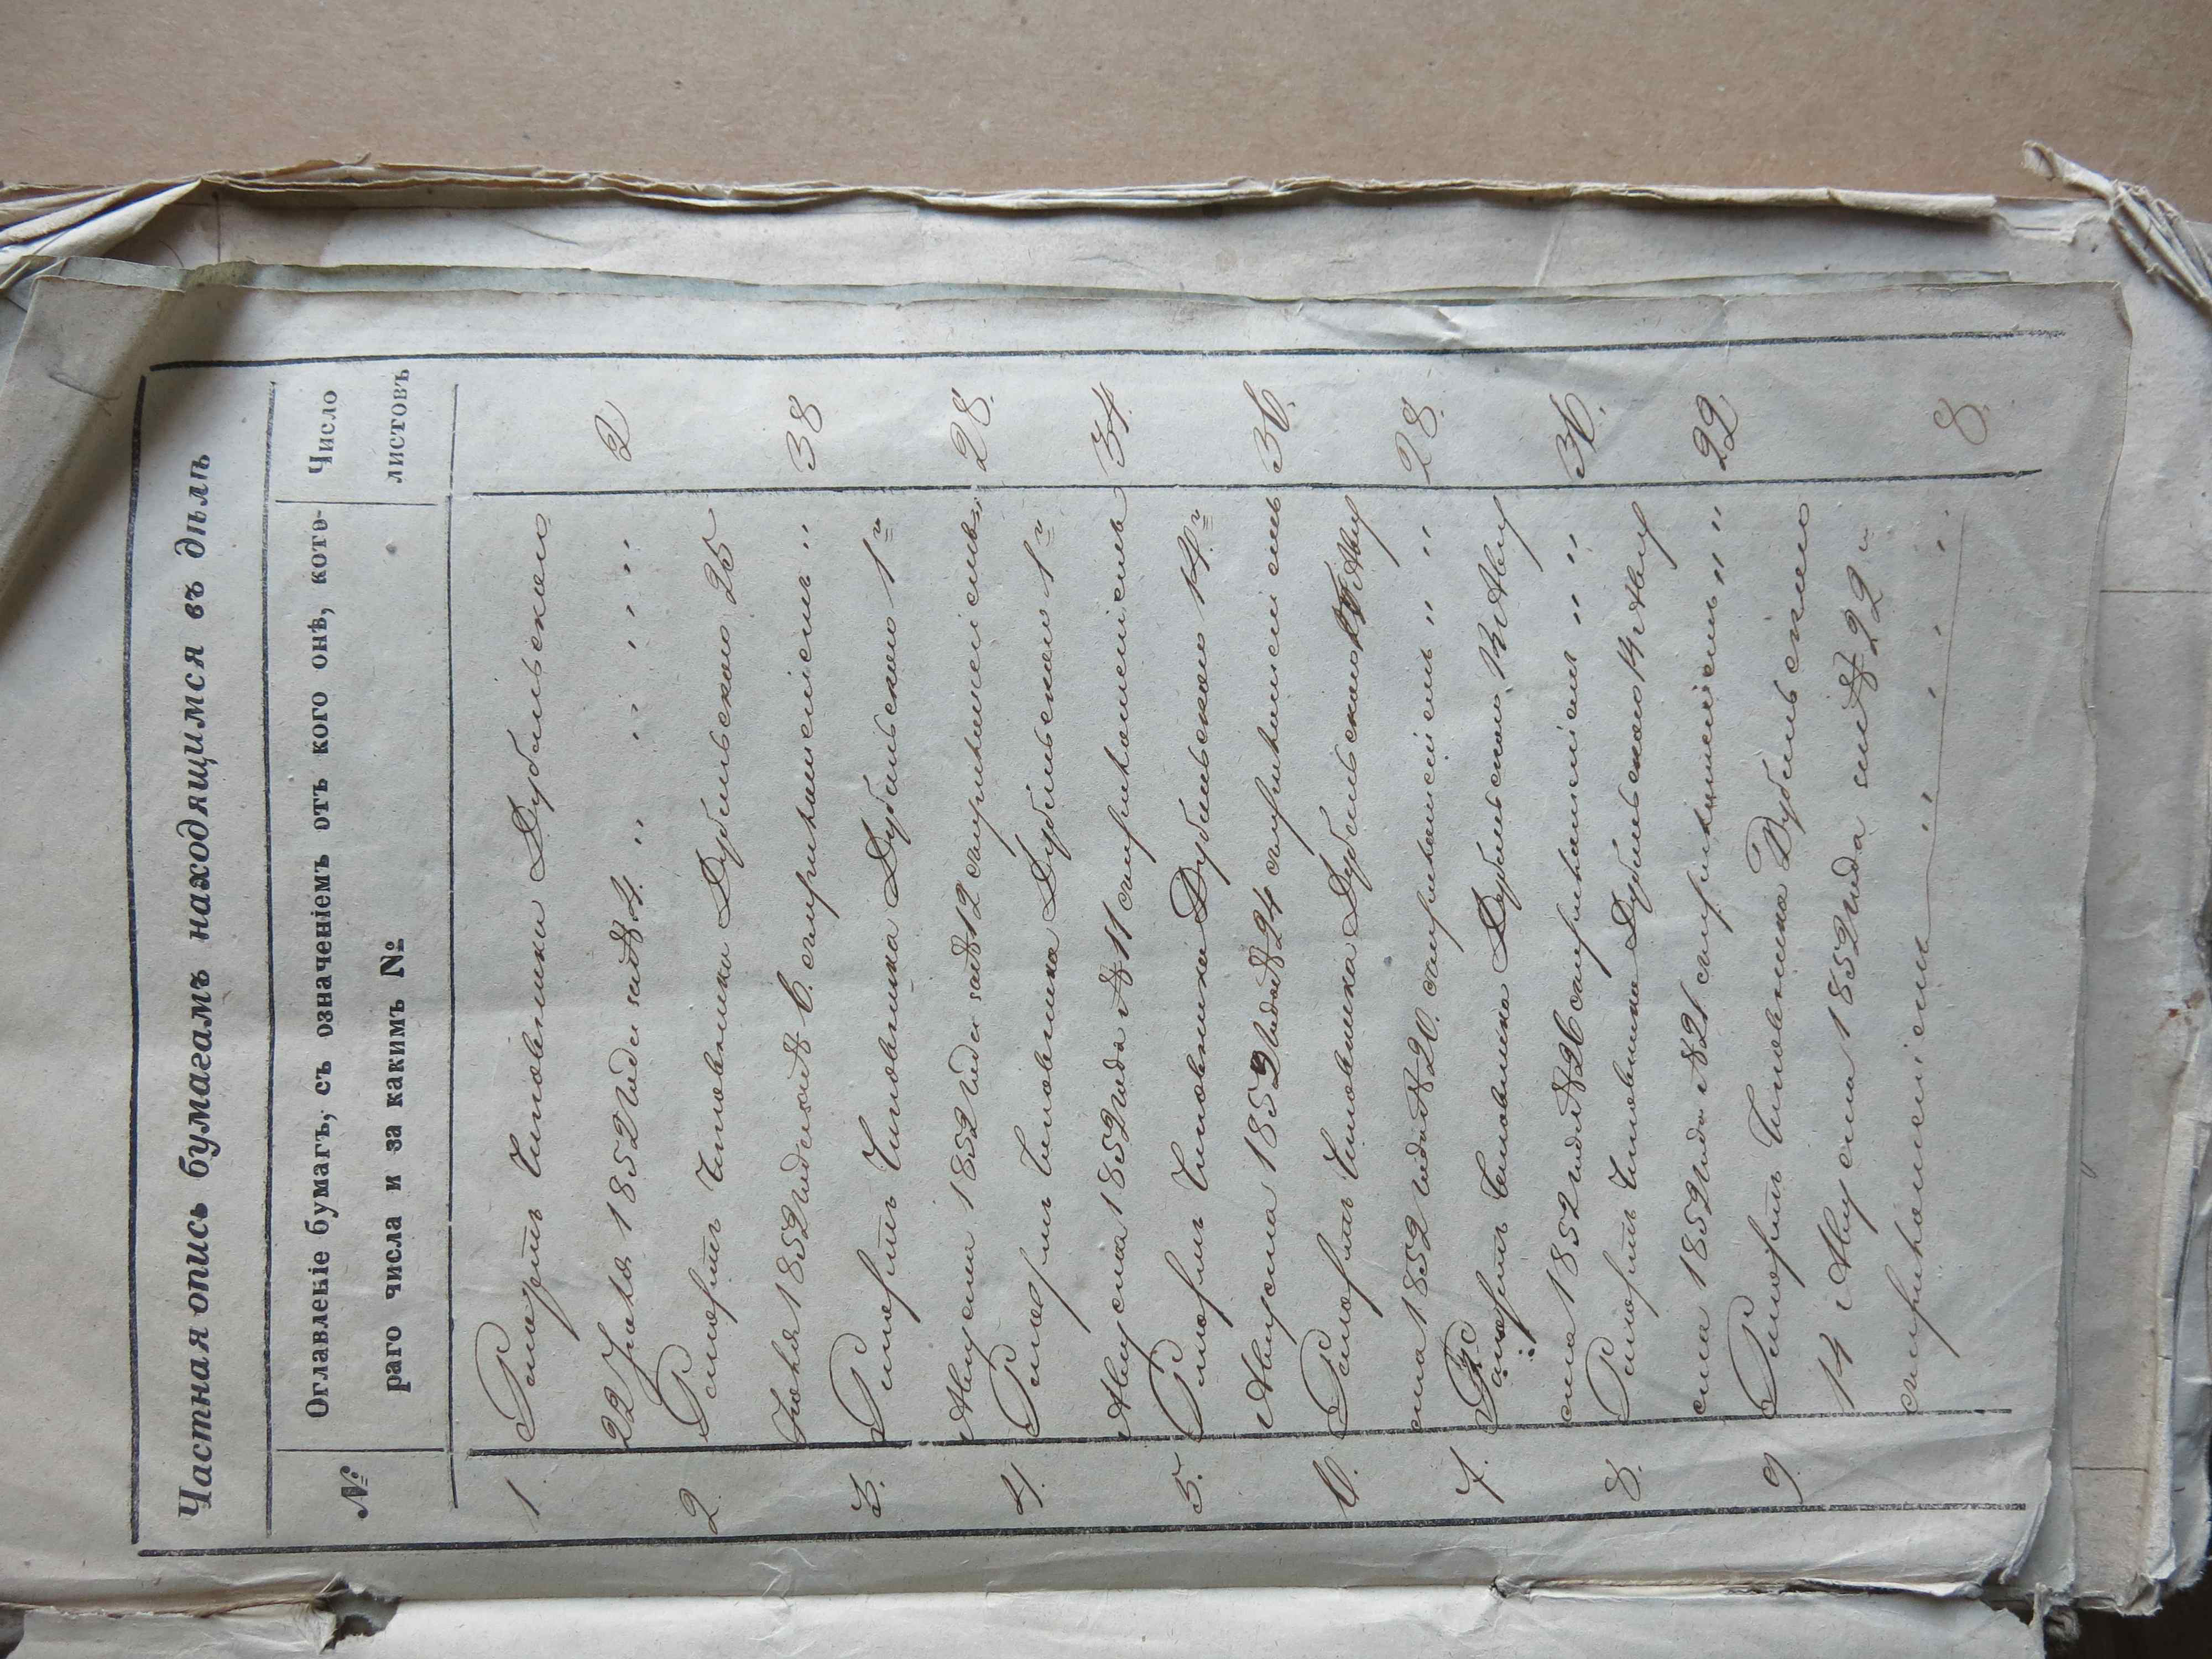 Частная опись бумагамъ находящимся въ дѣлѣ
№
Оглавленіе бумагъ, съ означеніемъ отъ кого онѣ, кото-
раго числа и за какимъ №
Число
листовъ
1. Рапортъ Чиновника Дубильскаго
22 Іюля 1852 года за № 4. 2
2. Рапортъ Чиновника Дубильскаго 25
Іюля 1852 года № 6. съ приложеніемъ 38
3. Рапортъ Чиновника Дубильскаго 1го
Августа 1852 года за № 12 съ приложеніемъ 28.
4. Рапортъ Чиновника Дубильскаго 1го
Августа 1852 года № 11 съ приложеніемъ 34.
5. Рапортъ Чиновника Дубильскаго 14го
Августа 1852 года № 24 съ приложеніемъ 36.
6. Рапортъ Чиновника Дубильскаго Авгу
ста 1852 года № 20. съ приложеніемъ 28.
7. Рапортъ Чиновника Дубильскаго Авгу
ста 1852 года № 26 съ приложеніемъ 36.
8. Рапортъ Чиновника Дубильскаго 14 Авгу
ста 1852 года № 21. съ приложеніемъ 22
9. Рапортъ Чиновника Дубильскаго
14 Августа 1852 года за № 22
съ приложеніемъ 8.